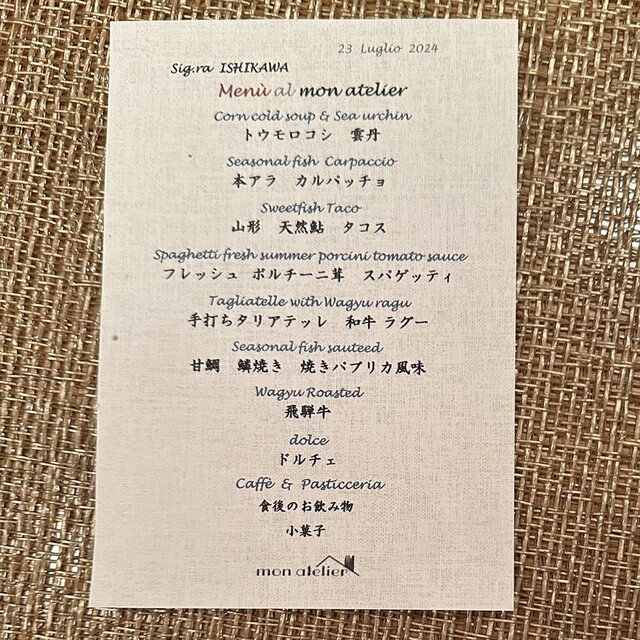 23 Luglio 2024
Sig.ra ISHIKAWA
Menù al mon atelier
Corn cold soup & Sea urchin
トウモロコシ 雲丹
Seasonal fish Carpaccio
本アラ カルパッチョ
Sweetfish Taco
山形 天然鮎 タコス
Spaghetti fresh summer porcini tomato sauce
フレッシュ ポルチーニ茸 スパゲッティ
Tagliatelle with Wagyu ragu
手打ちタリアテッレ 和牛 ラグー
Seasonal fish sauteed
甘鯛 鱗焼き 焼きパプリカ風味
Wagyu Roasted
飛騨牛
dolce
ドルチェ
Caffè & Pasticceria
食後のお飲み物
小菓子
mon atelier